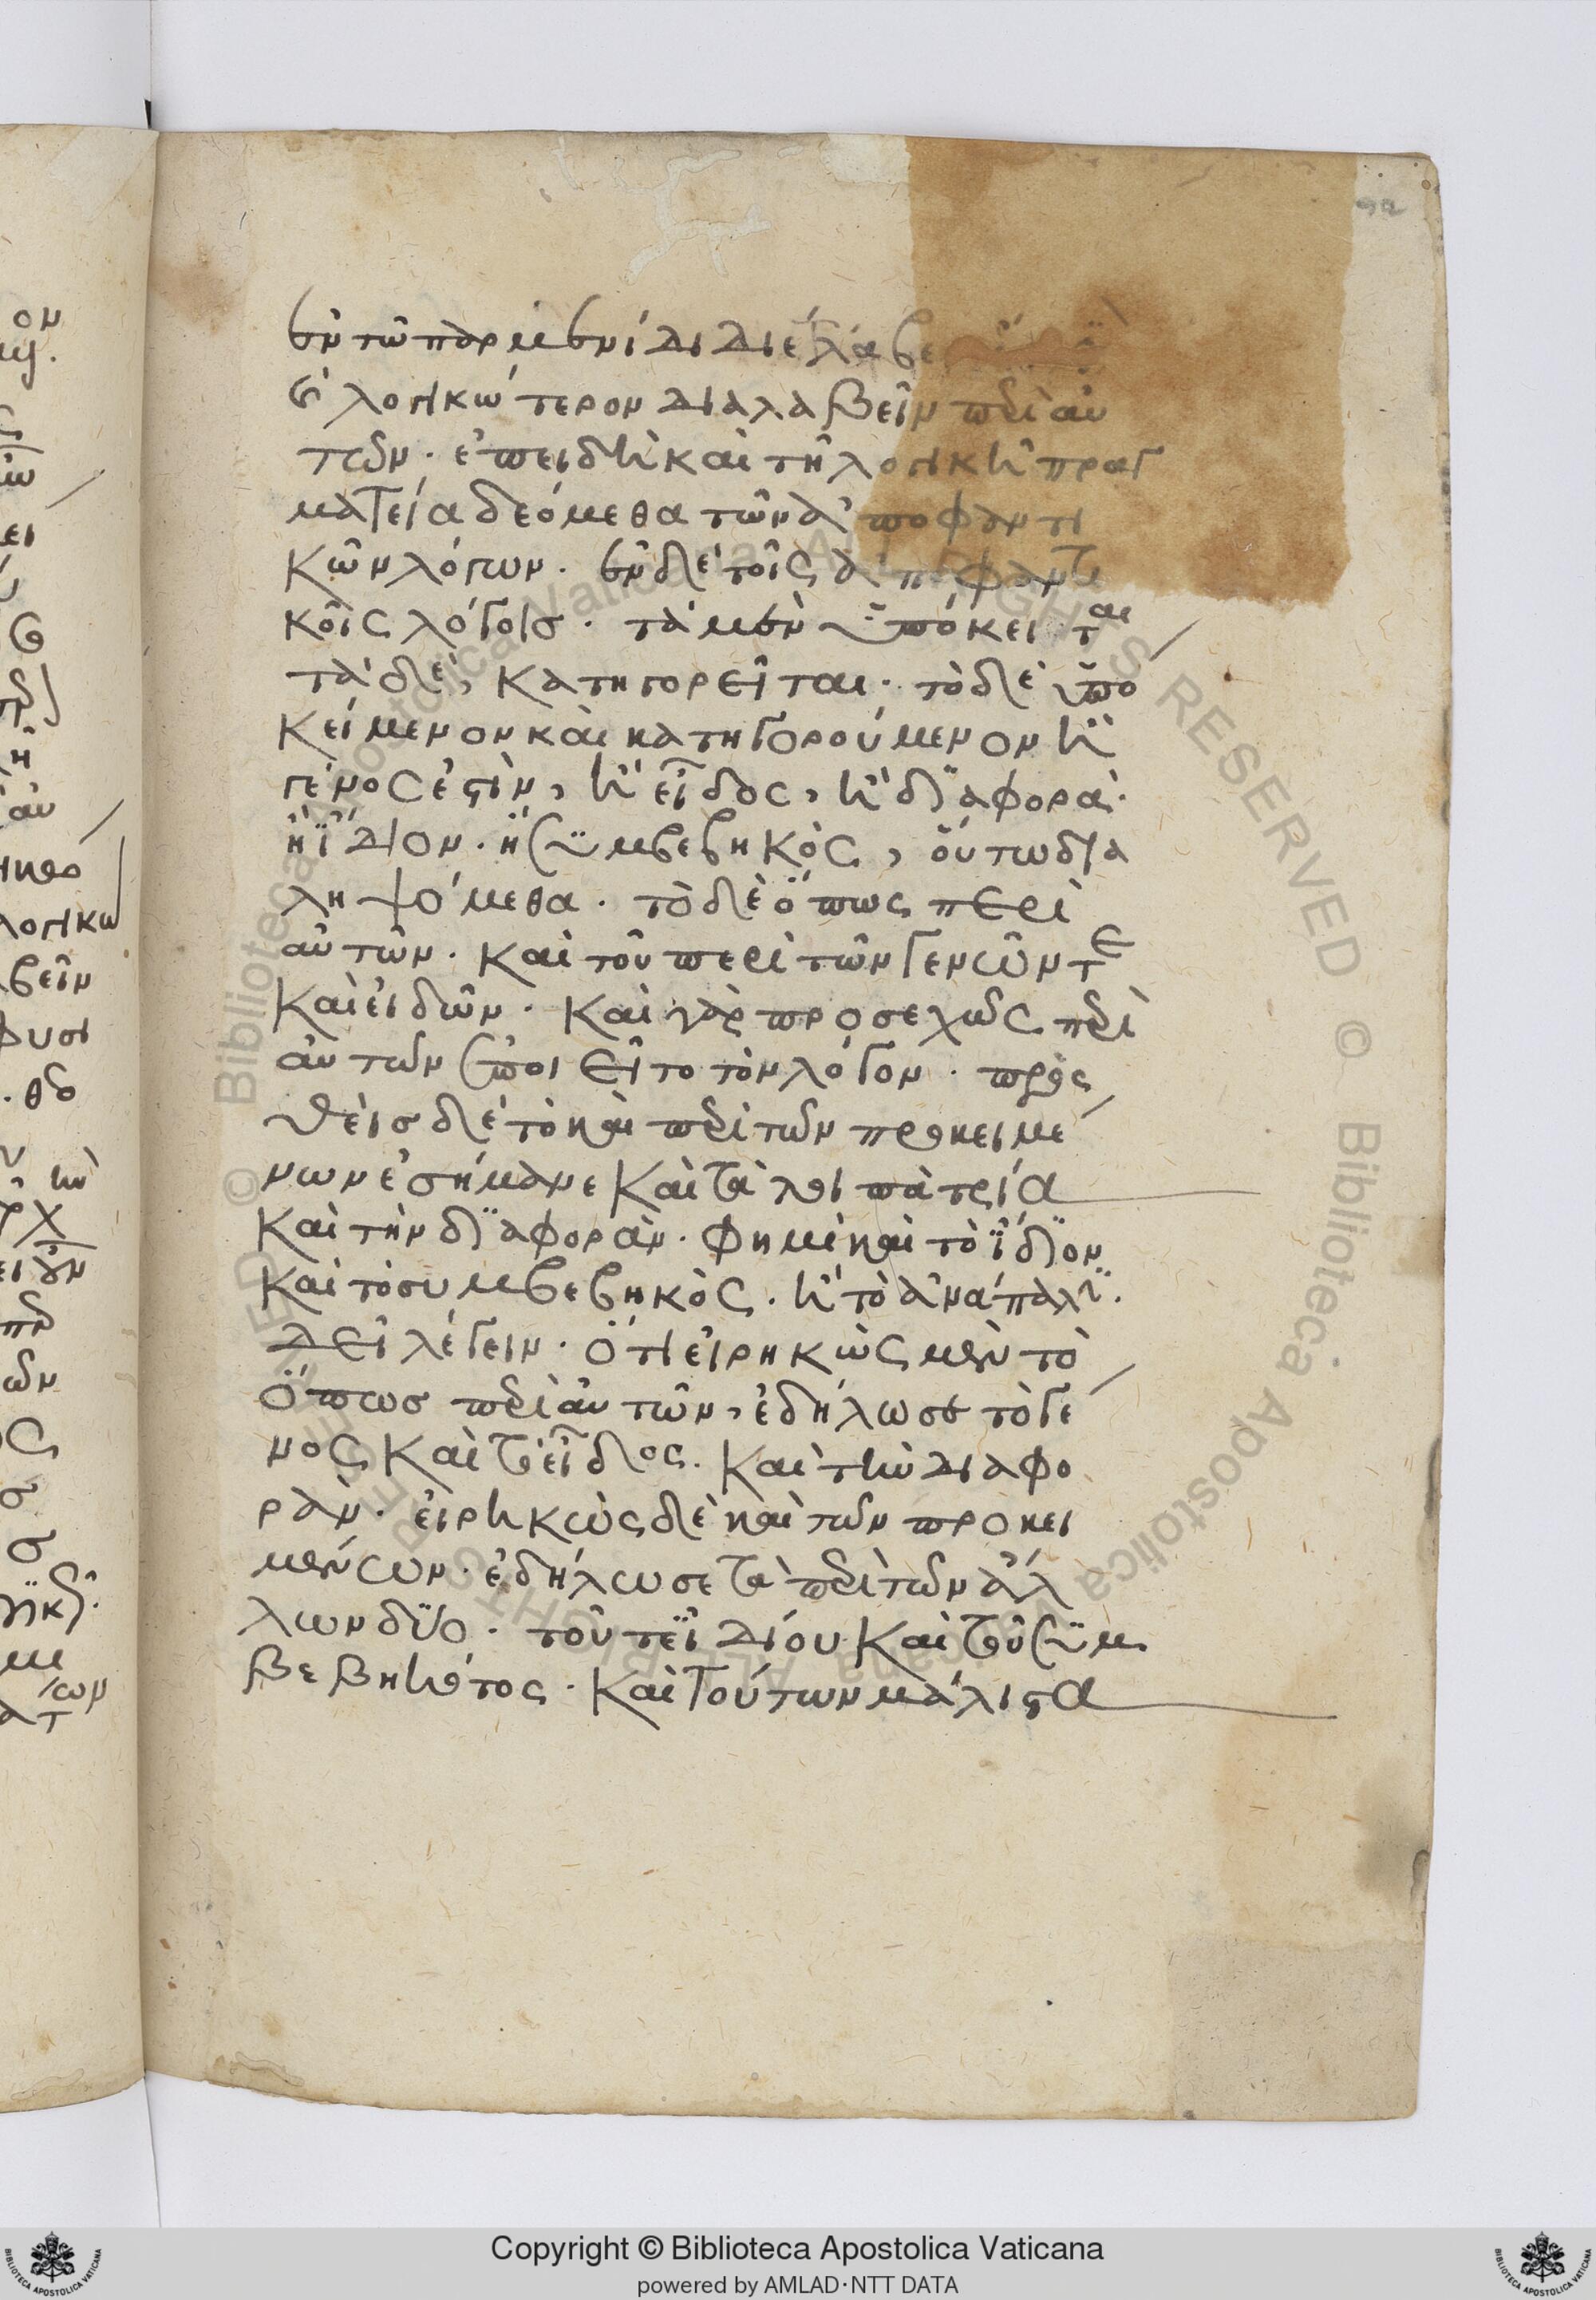 ἐν τῶ παρμενίδι διέλαβε
λογικώτερον διαλαβεῖν περὶ αυ
τῶν· ἐπειδὴ καὶ τῆ λογικῆ πραγ
ματεία δεόμεθα τῶν ἀποφαντι
κῶν λόγων· ἐν δὲ τοῖς ἀποφαντι
κοῖς λόγοις· τὰ μὲν ὑπόκειται
τὰ δὲ, κατηγορεῖται· τὸ δὲ ὑπο
κείμενον καὶ κατηγορούμενον ἢ
γένος ἐστὶν, ἢ εἶδος, ἢ διαφορά·
ἢ ἴδιον· ἢ συμβεβηκὸς, οὕτω δια
ληψόμεθα· τὸ δὲ ὅπως περὶ
αὐτῶν· καὶ τοῦ περὶ τῶν γενῶν τε
καὶ εἰδῶν· καὶ γὰρ προσεχῶς περὶ
αὐτῶν ἐποιεῖτο τὸν λόγον· προσ
θεὶς δὲ τὸ καὶ περὶ τῶν προκειμέ
νων ἐσήμανε καὶ τὰ λοιπὰ τρία
καὶ τὴν διαφοράν· φημὶ καὶ τὸ ἴδιον
καὶ τὸ συμβεβηκὸς· ἢ τὸ ἀνάπαλιν·
δεῖ λέγειν· ὅτι εἰρηκὼς μὲν τὸ
ὅπως περὶ αὐτῶν, ἐδήλωσε τὸ γέ
νος καὶ τὸ εἶδος· καὶ τὴν διαφο
ράν· εἰρηκὼς δὲ καὶ τῶν προκει
μένων· ἐδήλωσε τὰ περὶ τῶν ἄλ
λων δύο· τοῦ τε ἰδίου καὶ τοῦ συμ
βεβηκότος· καὶ τούτων μάλιστα
Copyright © Biblioteca Apostolica Vaticana
powered by AMLAD·NTT DATA